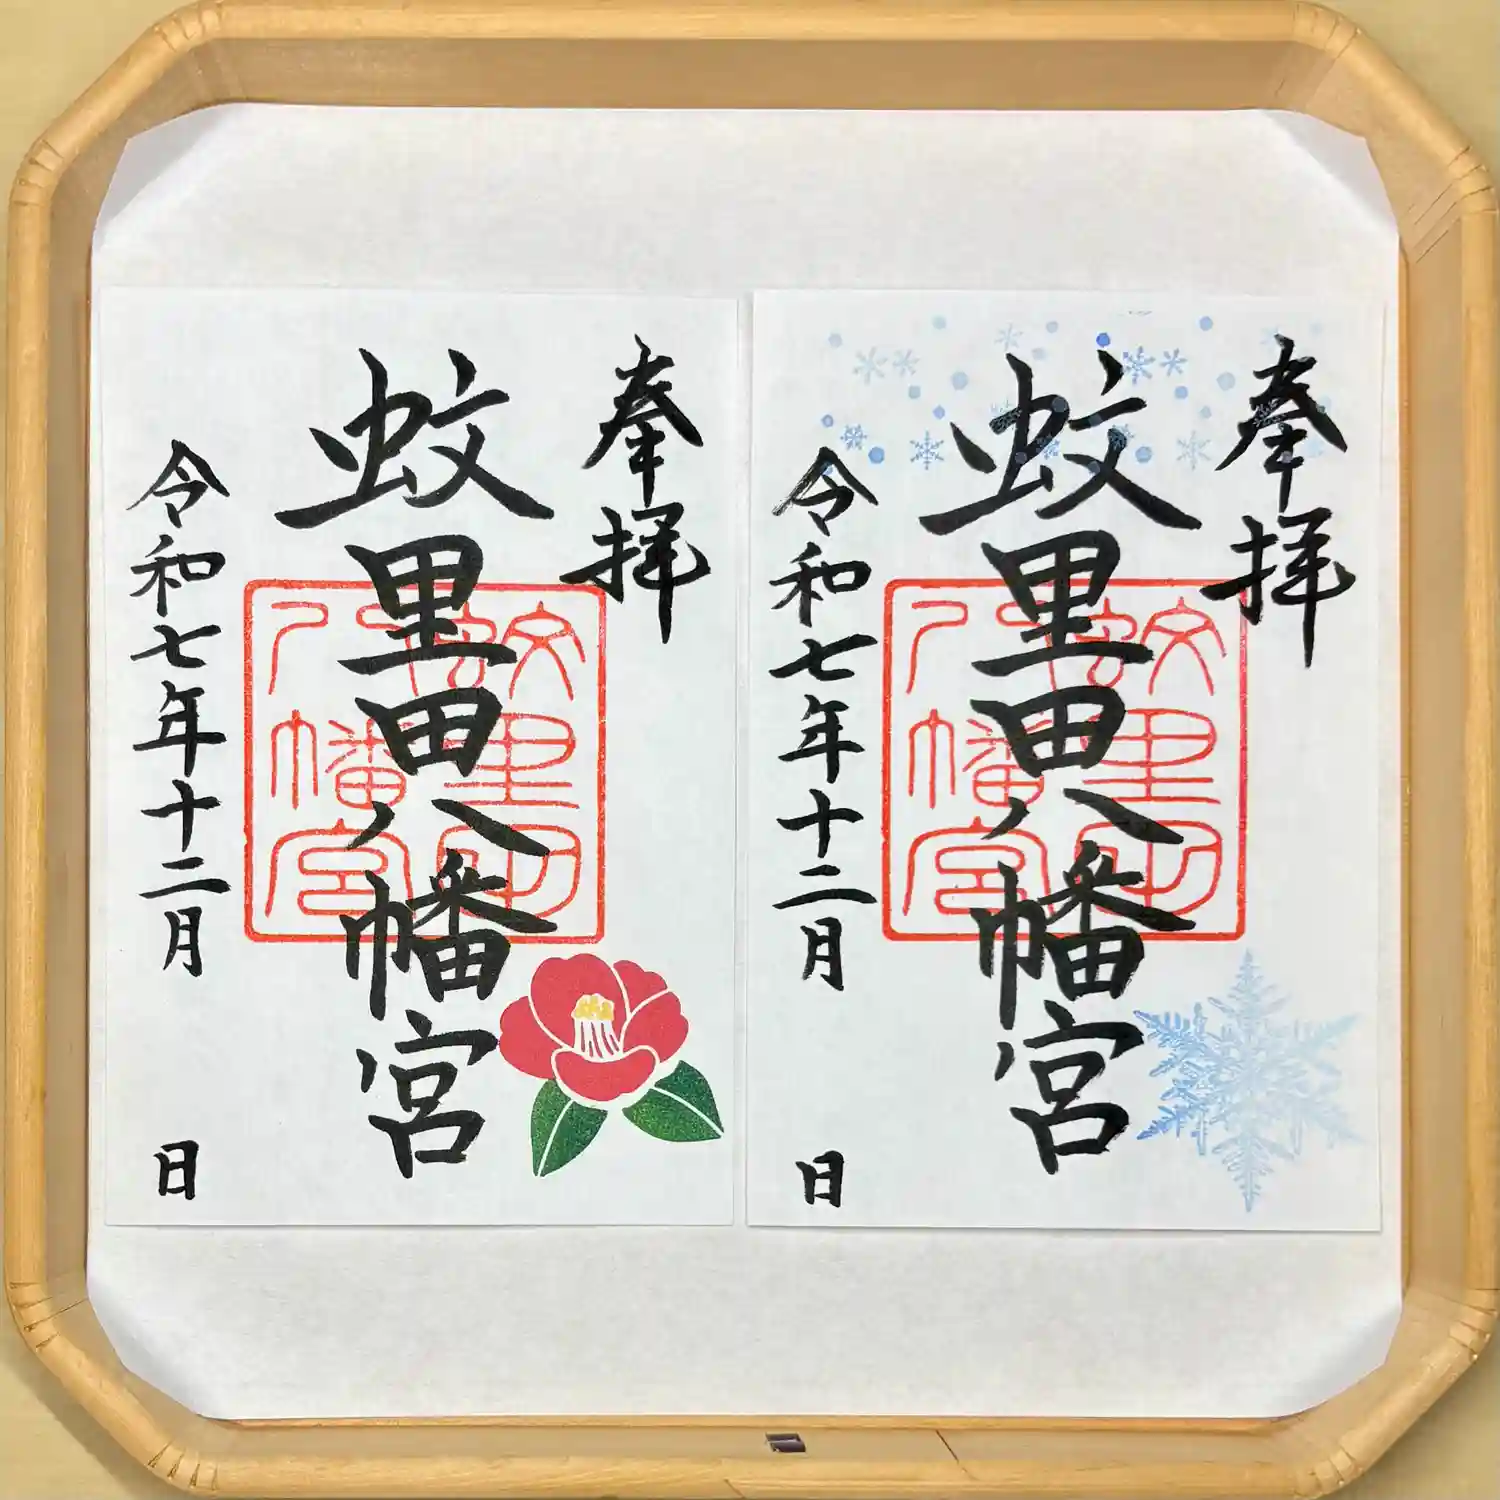 奉拝
蚊里田八幡宮
蚊里田
八幡宮
令和七年十二月　日
奉拝
蚊里田八幡宮
蚊里田
八幡宮
令和七年十二月　日